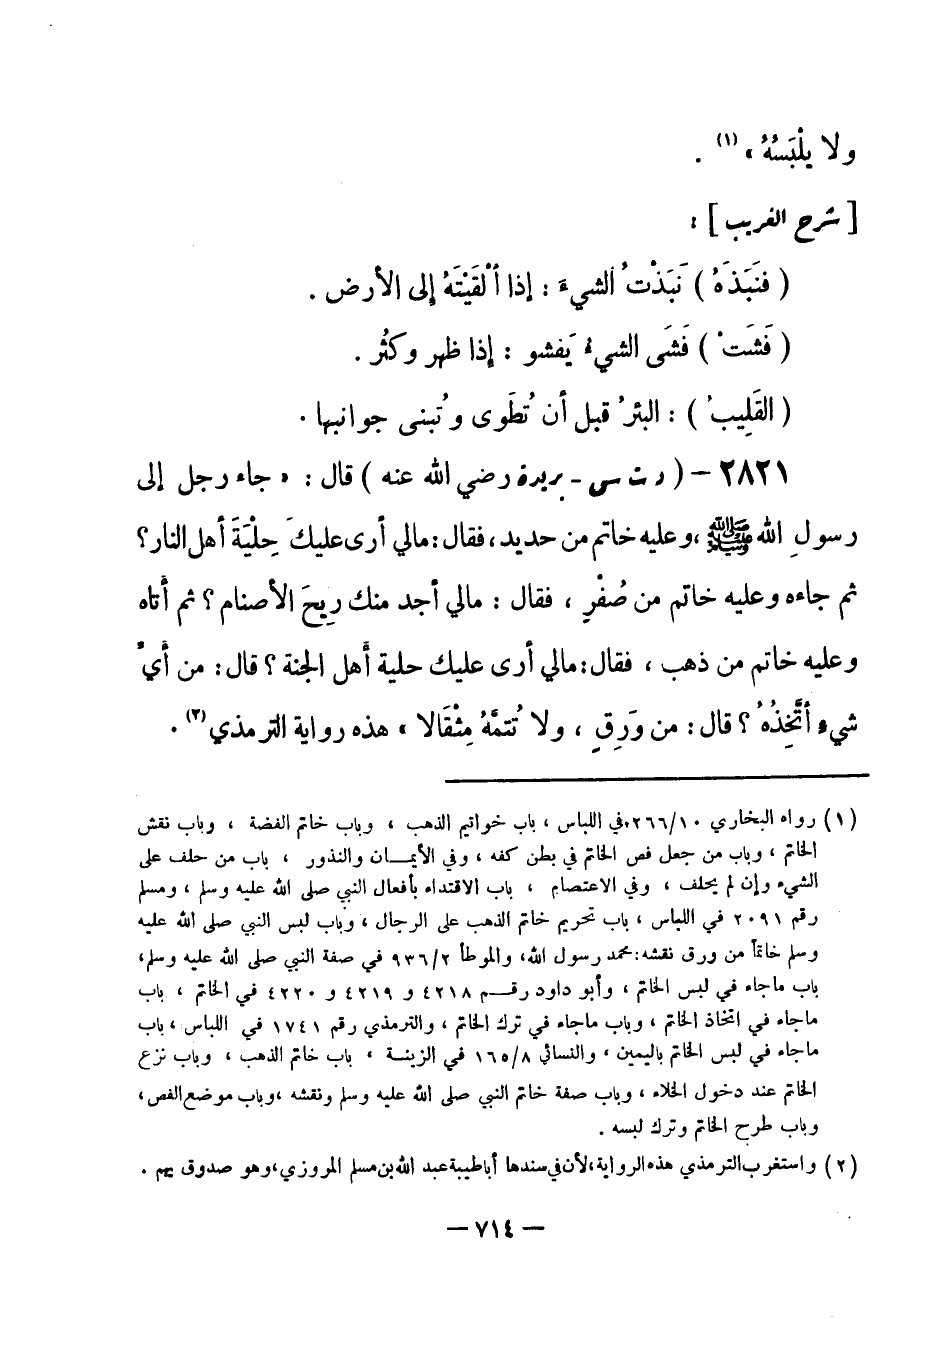 ولا يلْبَسُهُ » (١) .
[ شرح الغريب ] :
( فنَبَذَهُ ) نَبَذْتُ الشيءَ : إذا ألْقَيْتَهُ إلى الأرض .
( فَشَتْ ) فَشَى الشيءُ يَفشو : إذا ظهر وكثُر .
( القَلِيبُ ) : البئرُ قبل أن تُطَوى وتُبنى جوانبها .
٢٨٢١ – ( د ت س - بريدة رضي الله عنه ) قال : « جاء رجل إلى
رسولِ الله ﷺ ، وعليه خاتم من حديد ، فقال : مالي أرى عليكَ حِلْيَةَ أهل النار ؟
ثم جاءه وعليه خاتم من صُفْرٍ ، فقال : مالي أجد منك رِيحَ الأصنام ؟ ثم أتاه
وعليه خاتم من ذهب ، فقال : مالي أرى عليك حلية أهل الجنة ؟ قال : من أيِّ
شيء أتَّخِذُهُ ؟ قال : من وَرِقٍ ، ولا تُتمَّهُ مِثْقَالا » هذه رواية الترمذي (٢) .
(١) رواه البخاري ٢٦٦/١٠ ، في اللباس ، باب خواتيم الذهب ، وباب خاتم الفضة ، وباب نقش
الخاتم ، وباب من جعل فص الخاتم في بطن كفه ، وفي الأيمـان والنذور ، باب من حلف على
الشيء وإن لم يحلف ، وفي الاعتصام ، باب الاقتداء بأفعال النبي صلى الله عليه وسلم ، ومسلم
رقم ٢٠٩١ في اللباس ، باب تحريم خاتم الذهب على الرجال ، وباب لبس النبي صلى الله عليه
وسلم خاتماً من ورق نقشه : محمد رسول الله ، والموطأ ٩٣٦/٢ في صفة النبي صلى الله عليه وسلم ،
باب ماجاء في لبس الخاتم ، وأبو داود رقـم ٤٢١٨ و ٤٢١٩ و ٤٢٢٠ في الخاتم ، باب
ماجاء في اتخاذ الخاتم ، وباب ماجاء في ترك الخاتم ، والترمذي رقم ١٧٤١ في اللباس ، باب
ماجاء في لبس الخاتم باليمين ، والنسائي ١٦٥/٨ في الزينـة ، باب خاتم الذهب ، وباب نزع
الخاتم عند دخول الخلاء ، وباب صفة خاتم النبي صلى الله عليه وسلم ونقشه ، وباب موضع الفص ،
وباب طرح الخاتم وترك لبسه .
(٢) واستغرب الترمذي هذه الرواية ، لأن في سندها أباطيبة عبد الله بن مسلم المروزي ، وهو صدوق يهم .
– ٧١٤ –